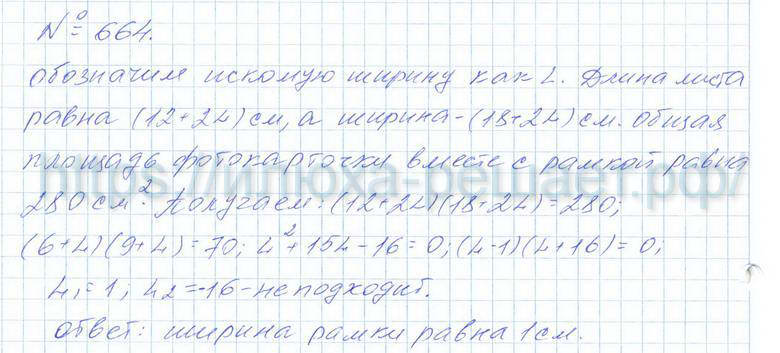 № 664.
обозначим искомую ширину как L. Длина листа
равна (12+2L) см, а ширина - (18+2L) см. общая
площадь фотокарточки вместе с рамкой равна
280 см². Получаем: (12+2L)(18+2L)=280;
(6+L)(9+L)=70; L²+15L-16=0; (L-1)(L+16)=0;
L₁=1; L₂=-16-не подходит.
ответ: ширина рамки равна 1см.
https://илюха-решает.рф/